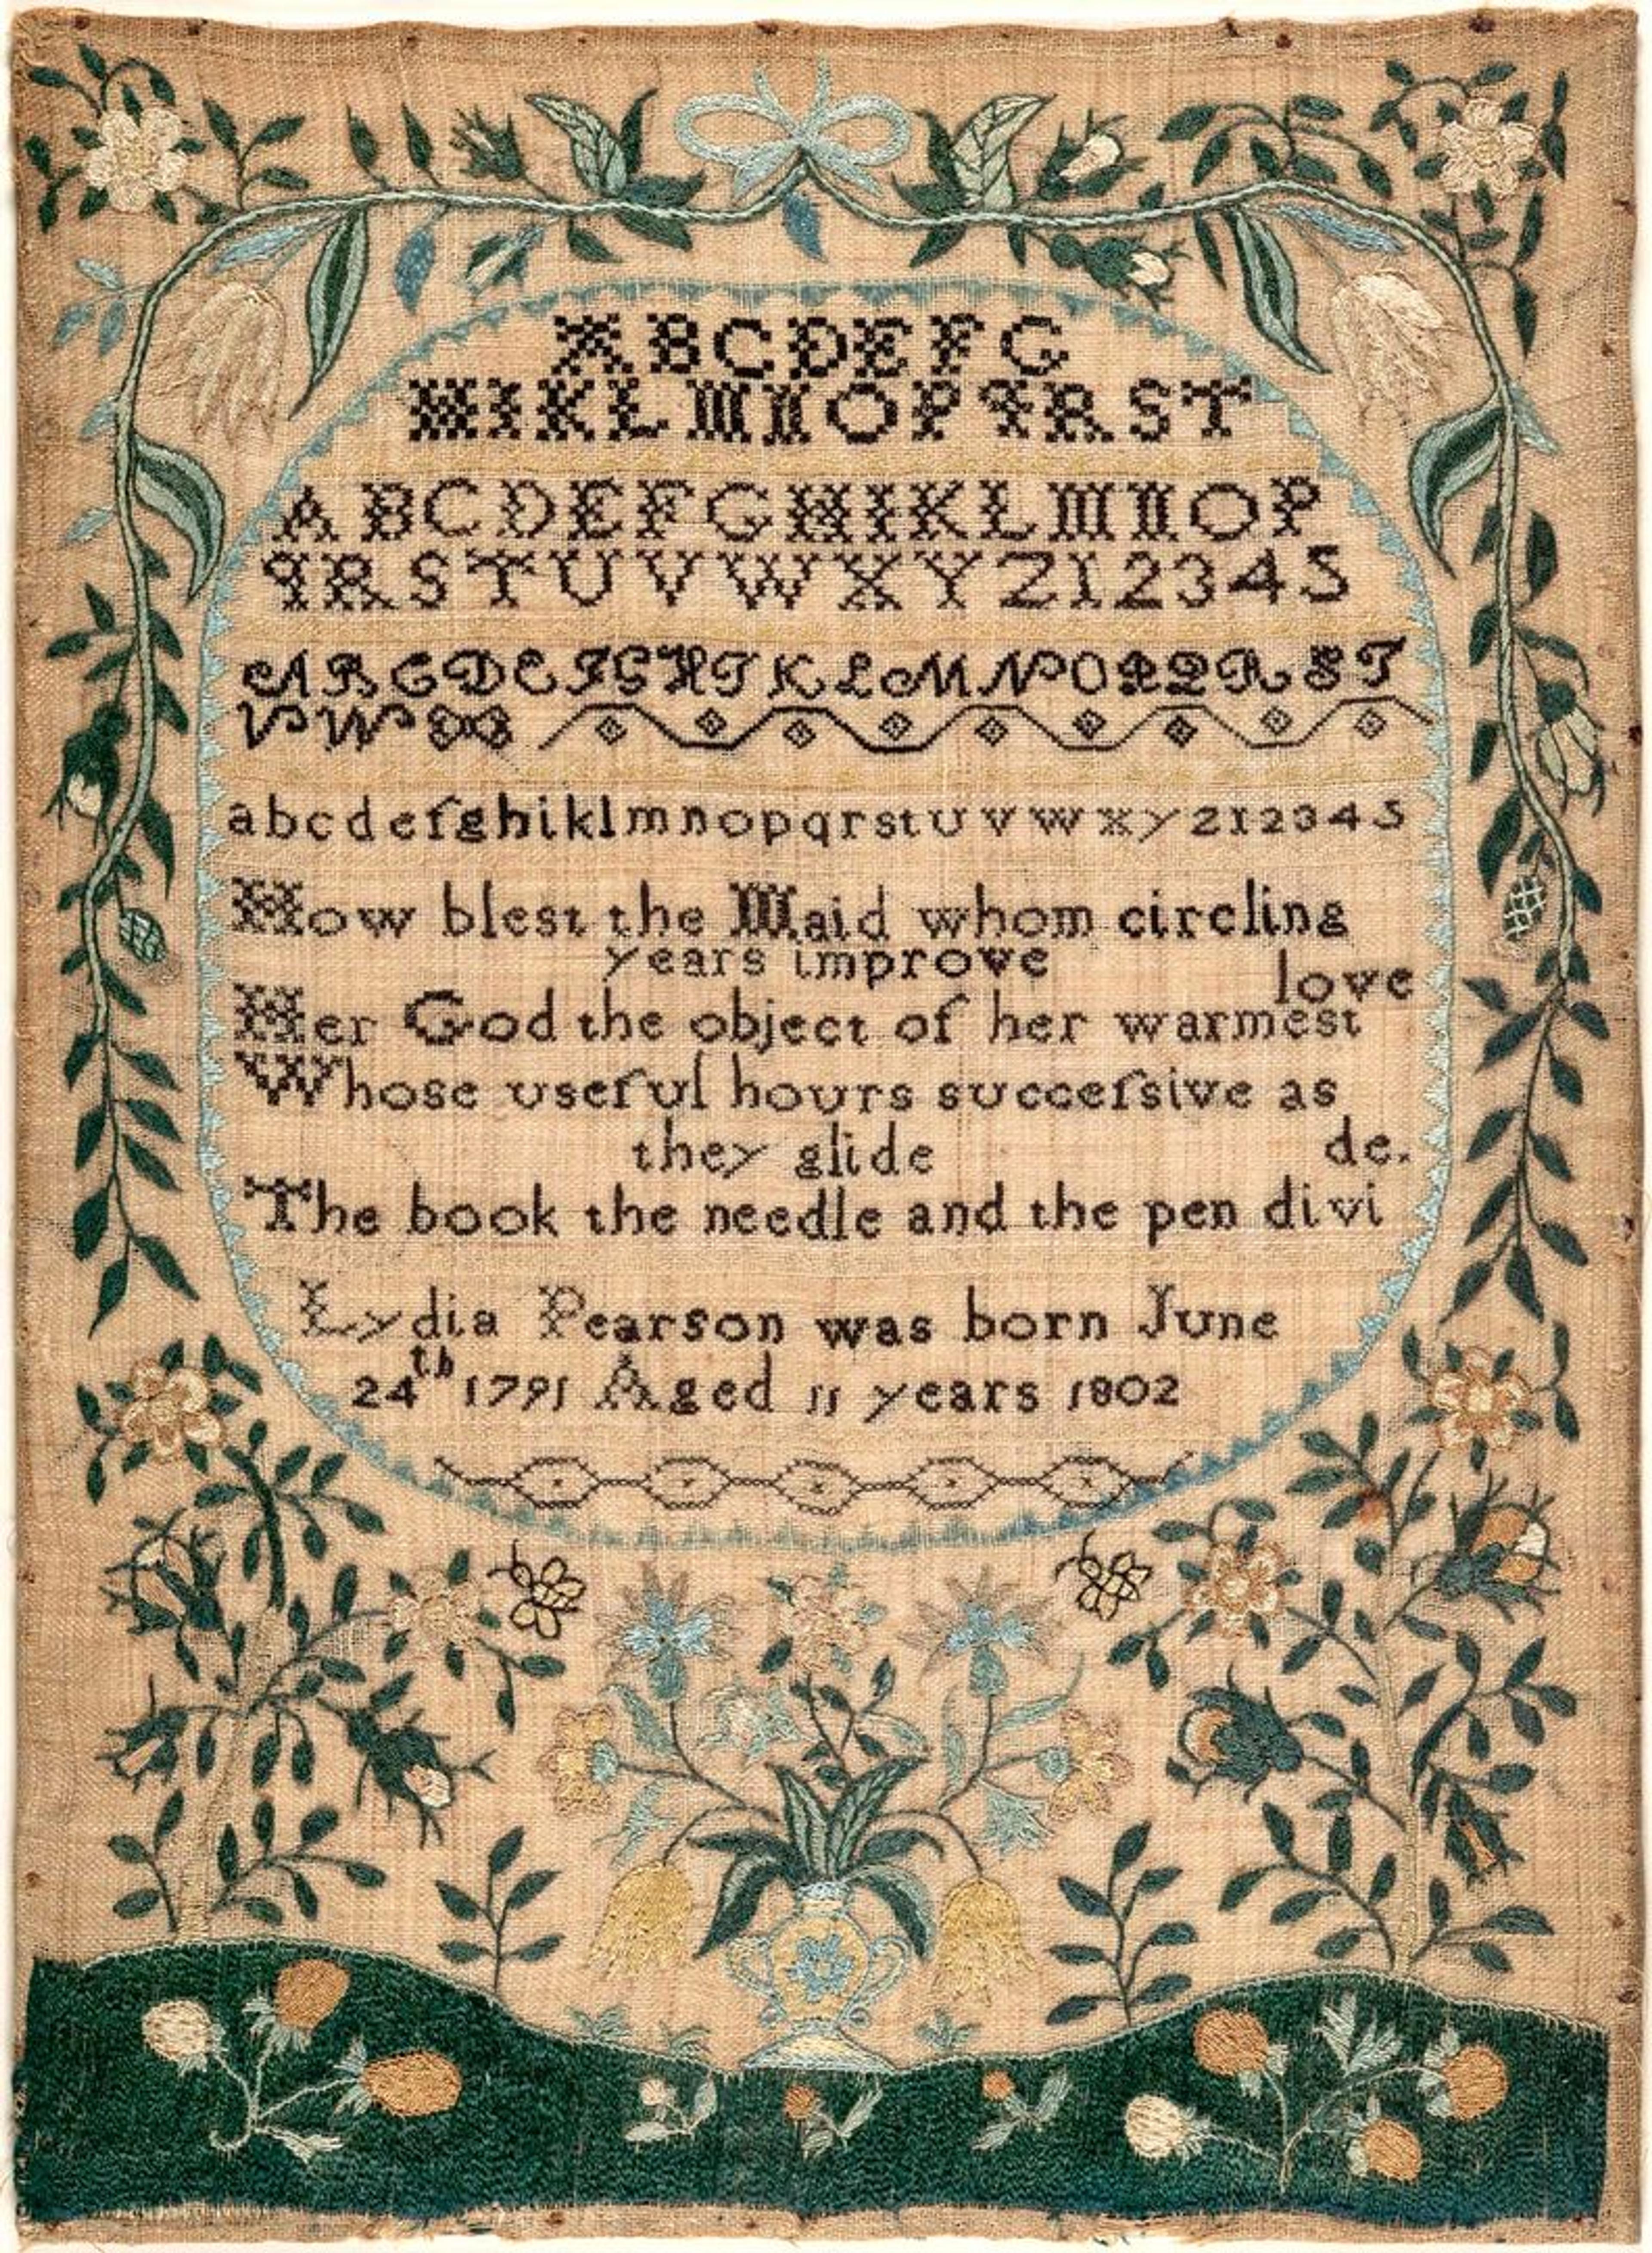 ABCDEFG
HIKLMNOPQRST
ABCDEFGHIKLMNOP
QRSTUVWXYZ12345
ABCDEFGHIKLMNOPQRST
VWX
abcdefghiklmnopqrstuvwxyz12345
How blest the Maid whom circling
years improve
Her God the object of her warmest
love
Whose useful hours succeſsive as
they glide
The book the needle and the pen divi
de.
Lydia Pearson was born June
24th 1791 Aged 11 years 1802